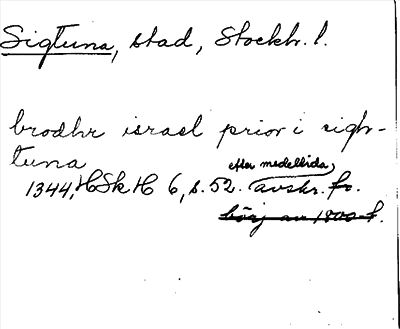 Sigtuna, stad, Stockh. l.
brodhr israel prior i sigh-
tuna
efter medeltida
1344, HSkH 6, s. 52. avskr. fr.
börj av 1800-t.